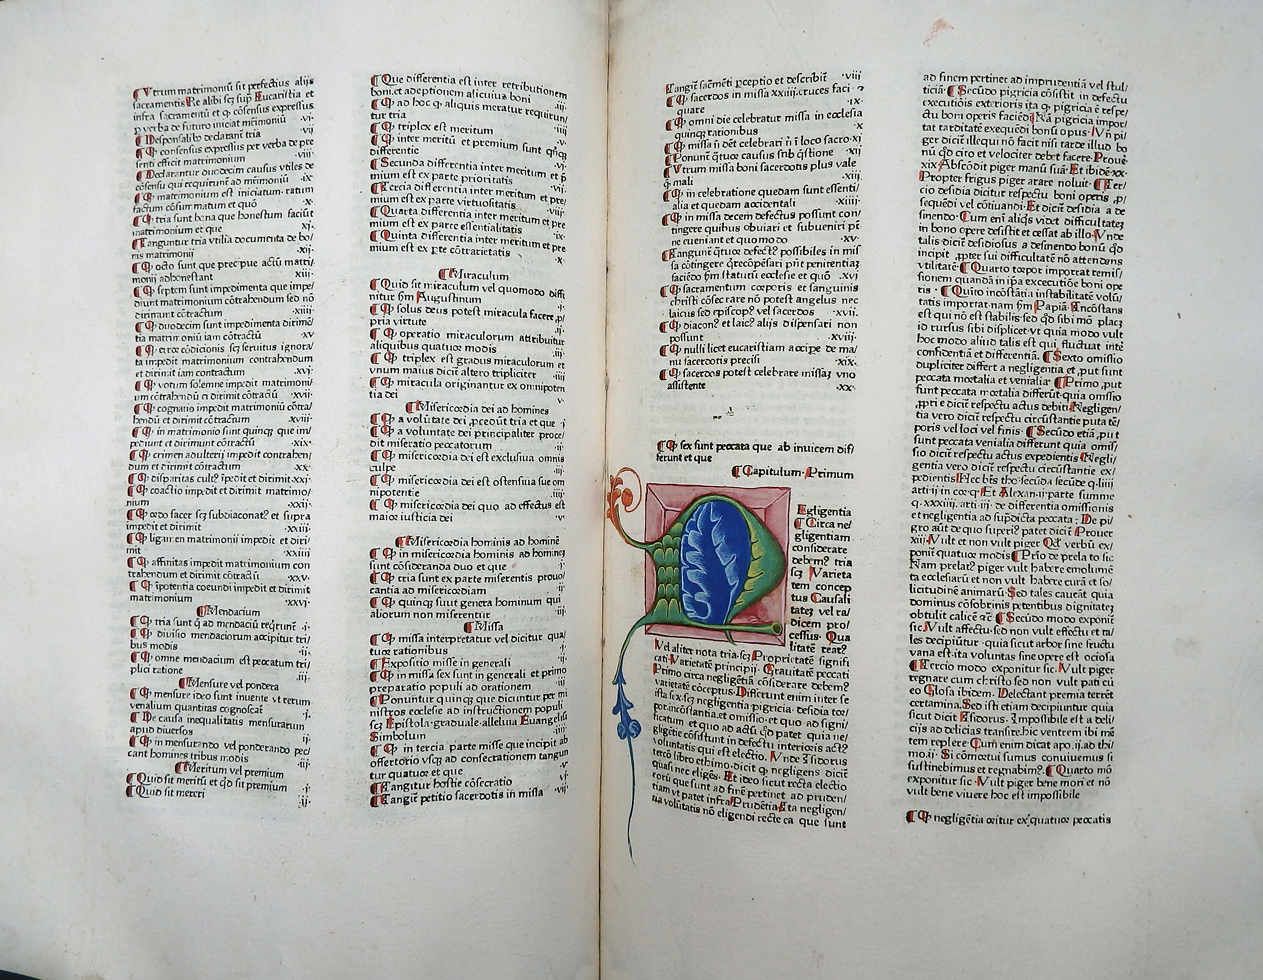 ¶ Vtrum matrimoniũ sit perfectius alijs
sacramentis Re alibi scꝫ sup̱ Eucaristia et
infra sacramentũ et ꝙ cõsensus expressius
p verba de futuro iniciat mr̃imoniũ ·vi·
¶ Desponsatiõ declarant̃ tria ·vij
¶ Q consensus expressus per verba de pre
senti efficit matrimonium ·viii·
¶ Declarantur duodecim casus vtiles de
cõsensu qui requirunt̃ ad mr̃imoniũ ·ix·
¶ Q matrimonium est iniciatum· ratum
factum cõsummatum et quõ ·x·
¶ Q tria sunt bona que honestum faciũt
matrimonium et que xj·
¶ Tanguntur tria vtilia documenta de bo/
nis matrimonij ·xij·
¶ Q octo sunt que precipue actũ matri/
monij adhonestant xiii·
¶ Q septem sunt impedimenta que impe/
diunt matrimonium cõtrahendum sed nõ
dirimunt cõtractum ·xiiij·
¶ Q duodecim sunt impedimenta dirimẽ/
tia matrimoniũ iam cõtractũ ·xv
¶ Q error cõdicionis scꝫ seruitus ignora/
ta impedit matrimonium contrahendum
et dirimit iam contractum ·xvj·
¶ Q votum solemne impedit matrimoni/
um cõtrahendũ et dirimit cõtractũ ·xvij·
¶ Q cognatio impedit matrimoniũ cõtra/
hendũ et dirimit cõtractum xviij·
¶ Q in matrimonio sunt quinqꝫ que im/
pediunt et dirimunt cõtractũ ·xix·
¶ Q crimen adulterij impedit contrahen/
dum et dirimit cõtractum ·xx·
¶ Q disparitas cult⁹ ĩpedit et dirimit·xxj·
¶ Q coactio impedit et dirimit matrimo/
nium ·xxij·
¶ Q ordo sacer scꝫ subdiaconat⁹ et supra
impedit et dirimit ·xxiij·
¶ Q ligamen matrimonij impedit et diri/
mit ·xxiiij
¶ Q affinitas impedit matrimonium con
trahendum et dirimit cõtractũ ·xxv·
¶ Q ĩpotentia coeundi impedit et dirimit
matrimonium ·xxvj·
¶ Mendacium
¶ Q tria sunt q̃ ad mendaciũ req̃runt̃ ·j·
¶ Q diuisio mendaciorum accipitur tri/
bus modis ·ij·
¶ Q omne mendacium est peccatum tri/
plici ratione ·iij·
¶ Mensure vel pondera
¶ Q mensure ideo sunt inuente vt rerum
venalium quantitas cognoscat̃ ·j·
¶ De causa inequalitatis mensurarum
apud diuersos ij·
¶ Q in mensurando vel ponderando pec/
cant homines tribus modis ·iij·
¶ Meritum vel premium
¶ Quid sit meritũ et qd sit premium ·j·
¶ Quid sit mereri ·ij·
¶ Que differentia est inter retributionem
boni et adeptionem alicuius boni ·iij·
¶ Q ad hoc ꝙ aliquis mereatur requirun/
tur tria ·iiij
¶ Q triplex est meritum ·v·
¶ Q inter meritũ et premium sunt qñqꝫ
differentie ·vi·
¶ Secunda differentia inter meritum et p̃
mium est ex parte prioritatis ·vij·
¶ Tercia differentia inter meritum et pre/
mium est ex parte virtuositatis ·viij·
¶ Quarta differentia inter meritum et pre
mium est ex parte essentialitatis ix·
¶ Quinta differentia inter meritum et pre
mium est ex p̱te cõtrarietatis ·x·
¶ Miraculum
¶ Quid sit miraculum vel quomodo diffi
nitur fm̃ Augustinum ·j·
¶ Q solus deus potest miracula facere ,p/
pria virtute ·ij·
¶ Q operatio miraculorum attribuitur
aliquibus quatuor modis ·iij·
¶ Q triplex est gradus miraculorum et
vnum maius dicit̃ altero tripliciter ·iiij·
¶ Q miracula originantur ex omnipoten
tia dei v·
¶ Misericordia dei ad homines
¶ Q a volũtate dei ,pcedũt tria et que ·j·
¶ Q a voluntate dei principaliter proce/
dit miseratio peccatorum ·ij·
¶ Q misericordia dei est exclusiua omnis
culpe ·iij·
¶ Q misericordia dei est ostensiua sue om
nipotentie ·iiij·
¶ Q misericordia dei quo ad effectus est
maior iusticia dei ·v·
¶ Misericordia hominis ad hominẽ
¶ Q in misericordia hominis ad hominẽ
sunt cõsideranda duo et que ·j·
¶ Q tria sunt ex parte miserentis prouo/
cantia ad misericordiam ·ij·
¶ Q quinqꝫ sunt genera hominum qui
aliorum non miserentur ·iij·
¶ Missa
¶ Q missa interpretatur vel dicitur qua/
tuor rationibus ·j·
¶ Expositio misse in generali ·ij·
¶ Q in missa sex sunt in generali et primo
preparatio populi ad orationem ·iij·
¶ Ponuntur quinqꝫ que dicuntur per mi
nistros ecclesie ad instructionem populi
scꝫ Epistola·graduale·alleluia Euangeliũ
Simbolum ·iiij·
¶ Q in tercia parte misse que incipit ab
offertorio vsqꝫ ad consecrationem tangun
tur quatuor et que v·
¶ Tangitur hostie cõsecratio vj·
¶ Tangit̃ petitio sacerdotis in missa ·vij·
Tangit̃ sac̃mẽti p̱ceptio et describit̃ ·viij
¶ Q sacerdos in missa xxiiij.cruces facit ⁊
quare ·ix·
¶ Q omni die celebratur missa in ecclesia
quinqꝫ rationibus ·x
¶ Q missa ñ dẽt celebrari ñ ĩ loco sacro·xj
¶ Ponunt̃ q̃tuor casus sub q̃stione ·xij
¶ Vtrum missa boni sacerdotis plus vale
q̃ mali ·xiij·
¶ Q in celebratione quedam sunt essenti/
alia et quedam accidentali ·xiiij·
¶ Q in missa decem defectus possunt con/
tingere quibus obuiari et subueniri pñt
ne eueniant et quomodo ·xv·
¶ Tangunt̃ q̃tuor defect⁹ possibiles in mis/
sa cõtingere q̃ recõpẽsari pñt penitentiaꝫ
faciẽdo fm̃ statutũ ecclesie et quõ ·xvj
¶ Q sacramentum corporis et sanguinis
christi cõsecrare nõ potest angelus nec
laicus sed ep̃iscop⁹ vel sacerdos ·xvij.
¶ Q diacon⁹ et laic⁹ alijs dispensari non
possunt ·xviij·
¶ Q nulli licet eucaristiam accipe de ma/
nu sacerdotis precisi ·xix·
¶ Q sacerdos potest celebrare missaꝫ vno
assistente ·xx·
¶ Q sex sunt peccata que ab inuicem dif/
ferunt et que
¶ Capitulum·Primum
Egligentia
¶ Circa ne/
gligentiam
considerare
debem⁹ tria
scꝫ Varieta
tem concep
tus Causali
tateꝫ vel ra/
dicem pro/
cessus· Qua
litatẽ reat⁹
Vel aliter nota tria·scꝫ Proprietatẽ signifi
cati·Varietatẽ principij· Grauitatẽ peccati
Primo circa negligẽtiã cõsiderare debem⁹
varietatẽ cõceptus·Differunt enim inter se
ista sex·scꝫ negligentia pigricia· desidia tor/
por·incõstantia·et omissio·et quo ad signi/
ficatum et quo ad actũ qd patet quia ne/
gligẽtie cõsistunt in defectu interioris act⁹
voluntatis qui est electio· Vnde Isidorus
tercõ libro ethimo·dicit ꝙ negligens dicit̃
quasi nec eligẽs· Et ideo sicut recta electio
eorũ que sunt ad finẽ pertinet ad pruden/
tiam vt patet infra Prudẽtia·Ita negligen/
tia volũtatis nõ eligendi recte ea que sunt
ad finem pertinet ad imprudentiã vel stul/
ticiã· ¶ Secũdo pigricia cõsistit in defectu
executiõis exterioris ita ꝙ pigricia ẽ respe/
ctu boni operis faciẽdi Nã pigricia impor/
tat tarditatẽ exequẽdi bonũ opus· Vñ pi/
ger dicit̃ ille qui nõ facit nisi tarde illud bo
nũ qd cito et velociter debet facere·Prouer·
xix·Abscõdit piger manũ suã· Et ibidẽ·xx·
Propter frigus piger arare noluit· ¶ Ter/
cio desidia dicitur respectu boni operis ,p/
sequẽdi vel cõtiuandi· Et dicit̃ desidia a de
sinendo· Cum eni aliq̃s videt difficultateꝫ
in bono opere desistit et cessat ab illo·Vnde
talis dicit̃ desidiosus a desinendo bonũ qd
incipit ,pter sui difficultatẽ nõ attendens
vtilitatẽ· ¶ Quarto torpor importat remis/
sionem quandã in ip̃a executiõe boni ope
ris · ¶ Quĩto incõstãtia instabilitatẽ volũ/
tatis importat·nam fm̃ Papiã· Incõstans
est qui nõ est stabilis·sed qd sibi mõ placꝫ
id rursus sibi displicet·vt quia modo vult
hoc modo aliud talis est qui fluctuat inte
confidentiã et differentiã. ¶ Sexto omissio
dupliciter differt a negligentia et ,put sunt
peccata mortalia et venialia· ¶ Primo ,put
sunt peccata mortalia differũt·quia omissio
,pri e dicit̃ respectu actus debiti·Negligen/
tia vero dicit̃ respectu circũstantie puta tẽ/
poris vel loci vel finis· ¶ Secũdo etiã ,put
sunt peccata venialia differunt quia omissi
dicit̃ respectu actus expedientis·Negli/
gentia vero dicit̃ respectu circũstantie ex/
pedientis·Hec bts tho·secũda secũde q·liiij
arti·ij in cor·q· Et Alexan·ij·parte summe
q·xxxxiij. arti·ij· de differentia omissionis
et negligentia ad supdicta peccata : De pi/
gro aũt de quo est supi⁹ patet dicit̃ Prouer
xiij·Vult et non vult piger Qd verbũ ex/
ponit̃ quatuor modis ¶ Prio de prela to sic·
Nam prelat⁹ piger vult habere emolumẽ
ta ecclesiarũ et non vult habere curã et so/
licitudinẽ animarũ·Sed tales caueãt quia
dominus cõsobrinis petentibus dignitateꝫ
obtulit calicẽ ⁊c̃ ¶ Secũdo modo exponit̃
sic·Vult affectu·sed non vult effectu et ta/
les decipiũtur·quia sicut arbor sine fructu
vana est·ita voluntas sine opere est ociosa
¶ Tercio modo exponitur sic·Vult piger
regnare cum christo sed non vult pati cũ
eo Glosa ibidem· Delectant premia terrẽt
certamina·Sed isti etiam decipiuntur quia
sicut dicit Isidorus· Impossibile est a deli/
cijs ad delicias transire·hic ventrem ibi mẽ
tem replere·Cum enim dicat apo.ij.ad thi/
mo·ij· Si cõmortui sumus conuiuemus si
sustinebimus et regnabim⁹· ¶ Quarto mõ
exponitur sic·Vult piger bene mori et nõ
vult bene viuere hoc est impossibile
¶ Q negligẽtia oritur ex quatuor peccatis